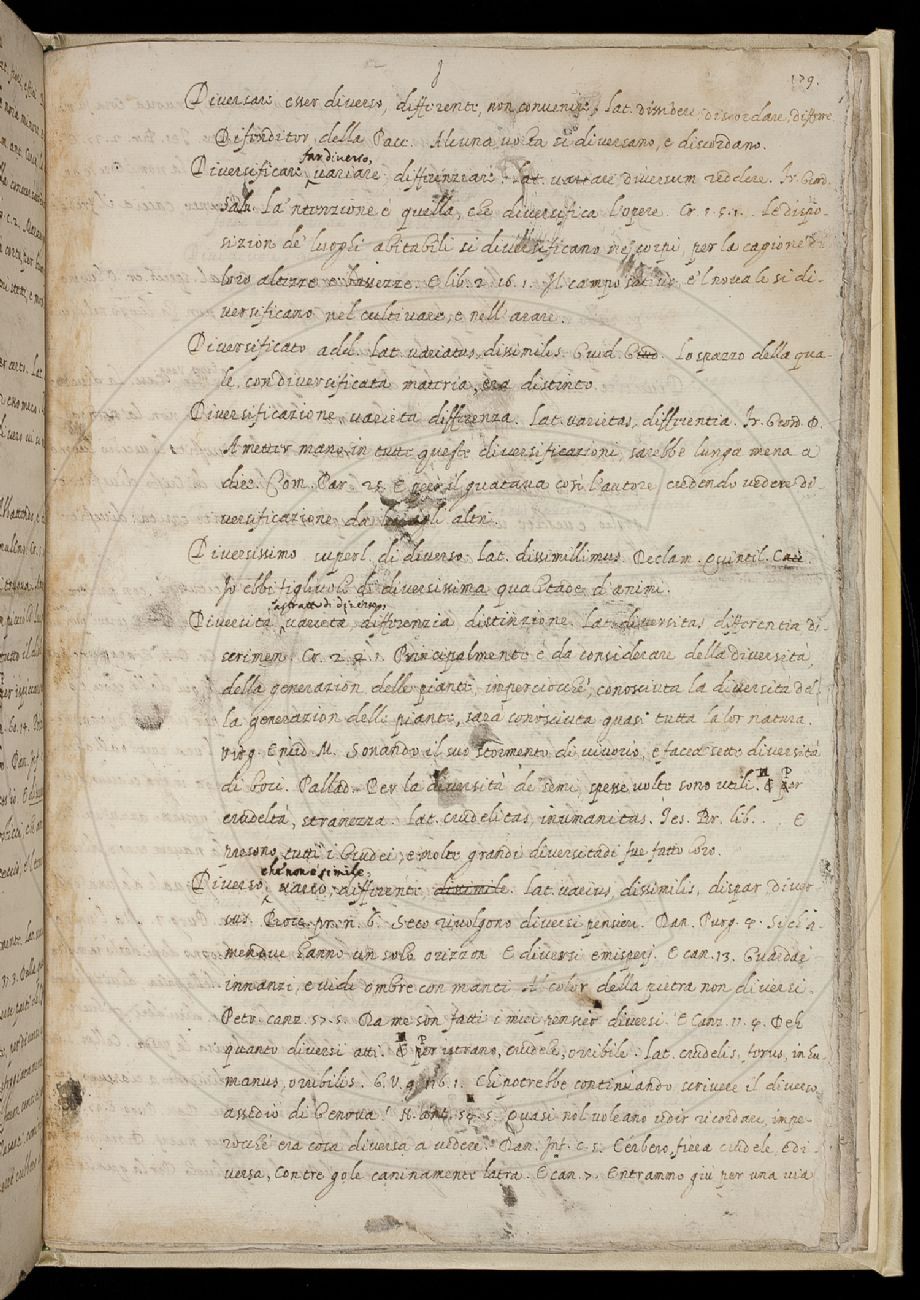 179.
Diversare esser diverso, differente, non convenire, lat. dissidere, discordare, differre
Difenditor della Pace. Alcuna volta si diversano, e discordano.
far diverso,
Diversificare variare differenziare. lat. variare diversum reddere. Fr. Giord.
Salu. La 'ntenzione è quella, che diversifica l'opere. Cr. 1.5.1. Le dispo-
sizion de' luoghi abitabili si diversificano ne' corpi, per la cagione di
loro altezze e bassezze. E lib. 2. 16. 1. Il campo e 'l novale si di-
versificano nel cultivare, e nell' arare.
Diversificato add. lat. variatus, dissimilis. Guid. Giud. Lo spazzo della qua-
le, con diversificata materia, era distinto.
Diversificazione, varietà differenza. lat. varietas, differentia. Fr. Giord. D.
A metter mano in tutte queste diversificazioni, sarebbe lunga mena a
dire. Com. Par. 28. E per il guatava così l'autore credendo vedere di-
versificazione da gli altri.
Diversissimo superl. di diverso. lat. dissimillimus. Declam. Quintil.
Io ebbi figliuoli di diversissima qualitade d'animi.
astratto di diverso,
Diversità varietà, differenzia distinzione. lat. diversitas differentia di-
scrimen. Cr. 2. 1. Principalmente è da considerare della diversità,
della generazion delle piante, imperciocchè, conosciuta la diversità del
la generazion delle piante, sarà conosciuta quasi tutta la lor natura.
Virg. Eneid. M. Sonando il suo stormento di vivorio, e facea sette diversità
di boci. Pallad. Per la diversità de' semi, spesse volte sono utili. ¶ per
crudeltà, stranezza. lat. crudelitas, inumanitas. Tes. Br. lib. . E
presono tutti i Giudei, e molte grandi diversitadi fue fatto loro.
che non è simile,
Diverso, vario, differente, dissimile. lat. varius, dissimilis, dispar diver-
sus. Bocc. proem. 6. Seco rivolgono diversi pensieri. Dan. Purg. 4. Sì ch' a-
mendue hanno un solo orizzon E diversi emisperj. E can. 13. Guardai
innanzi, e vidi ombre con manti Al color della pietra non diversi.
Petr. canz. 57. 5. Da me son fatti i miei pensier diversi. E Canz. 11. 4. Deh
quanto diversi atti. ¶ per istrano, crudele, orribile. lat. crudelis, torvus, inhu
manus, orribilis. G. V. 9. 116. 1. Chi potrebbe continuando scrivere il diverso
assedio di Genova? N. ant. 54. 5. Quasi nol voleano udir ricordare, impe-
rocchè era cosa diversa a vedere. Dan. Inf. c. 5. Cerbero, fiera crudele, e di-
versa, Con tre gole caninamente latra. E can. 7. Entrammo giù per una via